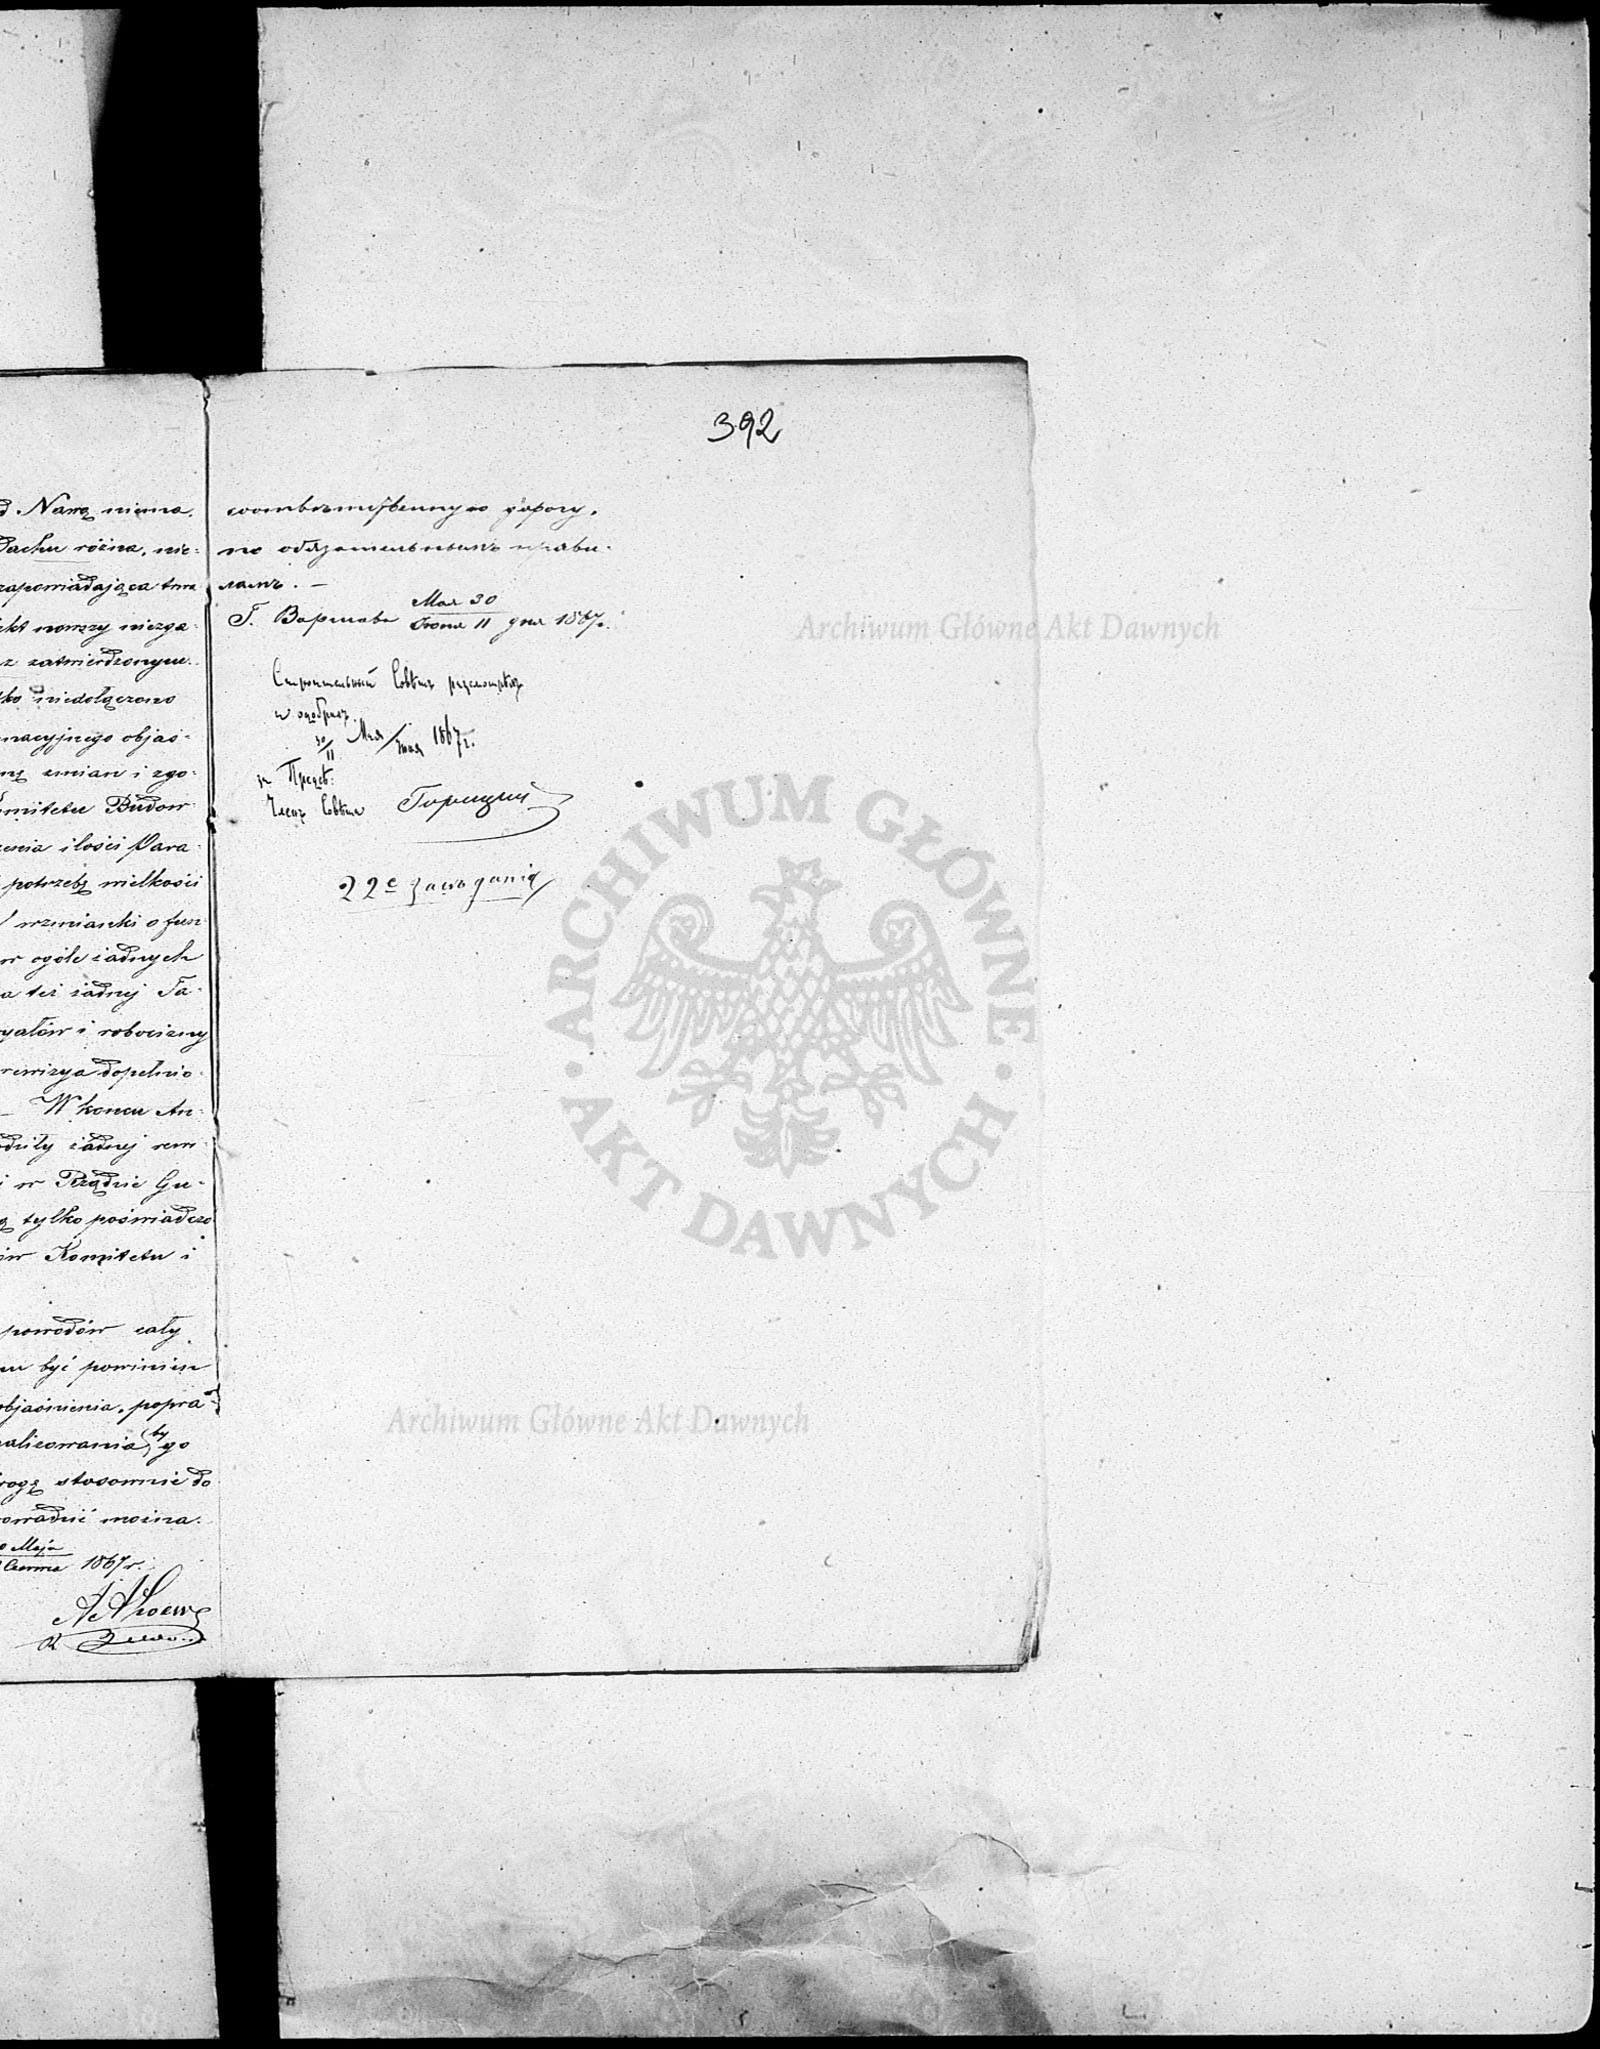 392
d Nawą niema.
Dachu różna, nie-
zapowiadająca trwa
ekt nowszy niezga-
z zatwierdzonym.
ko niedołączono
macyjnego objaś-
nę zmian i zgo-
omitetu Budow-
zenia ilości Para-
potrzebę wielkości
wzmianki o fun-
w ogóle żadnych
a też żadnej Ta-
ryałów i robocizny
rewizya dopełnio-
— W końcu An-
odziły żadnej rew-
i w Rządzie Gu-
ą tylko poświadczo
ów Komitetu i
powodów cały
mu być powinien
objaśnienia, popra-
alizowania, by go
rogę stosownie do
owadzić można.
0 Maja
Czerwca 1867 r.
соответственную дорогу,
по обязательнымъ прави-
ламъ. —
Г. Варшава Мая 30
Іюня 11 дня 1867 г.
Строительный Совѣтъ разсмотрѣлъ
и одобрилъ.
30/11 Мая/Іюня 1867 г.
за Предсѣ:
Членъ Совѣта
22е засѣданіе
Archiwum Główne Akt Dawnych
ARCHIWUM GŁÓWNE
AKT DAWNYCH
Archiwum Główne Akt Dawnych